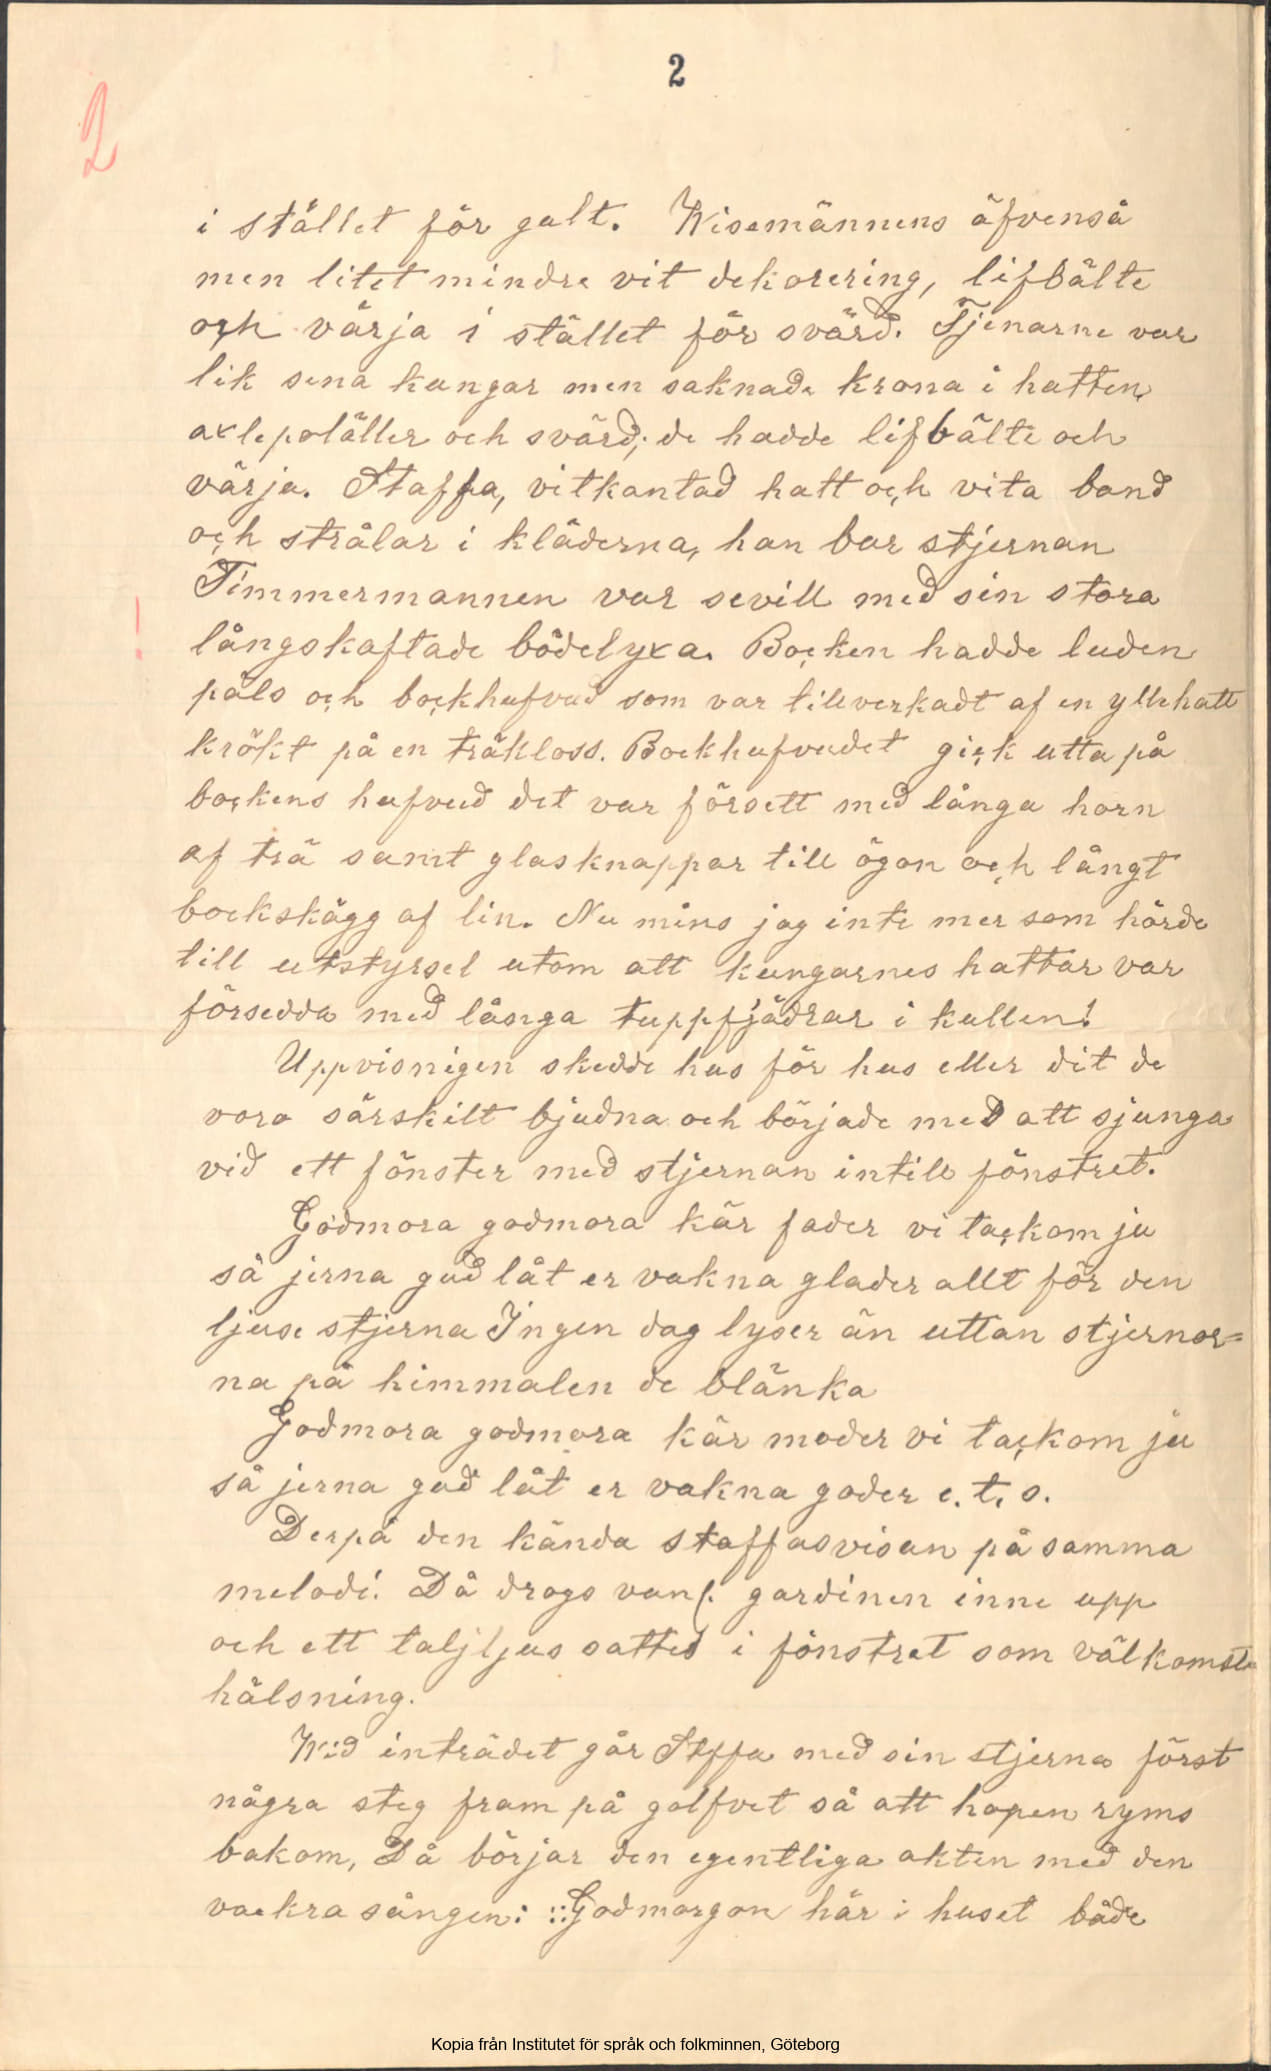 2
2
i stället för gult. Wisemännens äfvenså
men litet mindre vit dekorering, lifbälte
och värja i stället för svärd. Tjenarne var
lik sena kungar men saknade krona i hatten,
axlepoläller och svärd; de hadde lifbälte och
värja. Staffa, vitkantad hatt och vita band
och strålar i kläderna, han bar stjernan
Timmermannen var sevill med sin stora
!
långskaftade bödelyxa. Bocken hadde luden
päls och bockhufvud som var tillverkadt af en yllehatt
krökt på en träkloss. Bockhufvudet gick utta på
bockens hufvud det var försett med långa horn
af trä samt glasknappar till ögon och långt
bockskägg af lin. Nu mins jag inte mer som hörde
till utstyrsel utom att kungarnes hattar var
försedda med långa tuppfjädrar i kullen!
Uppvisnigen skedde hus för hus eller dit de
voro särskilt bjudna och började med att sjunga
vid ett fönster med stjernan intill fönstret.
Godmora godmora kär fader vi tackom ju
så jerna gud låt er vakna glader allt för den
ljusa stjerna Ingen dag lyser än uttan stjernor=
na på himmalen de blänka
Godmora godmora kär moder vi tackom ju
så jerna gud låt er vakna goder e. t. s.
Derpå den kända staffasvisan på samma
melodi. Då drogs vanl. gardinen inne upp
och ett taljljus sattes i fönstret som välkomst-
hälsning.
Wid inträdet går Stffa med sin stjerna först
några steg fram på golfvet så att hopen ryms
bakom, Då börjar den egentliga akten med den
vackra sången: :: Godmorgon här i huset både
Kopia från Institutet för språk och folkminnen, Göteborg